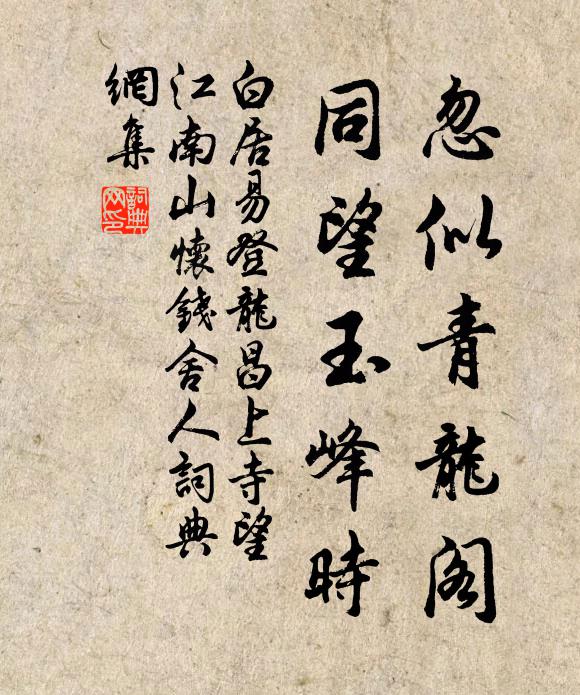 忽似青龍閣
同望玉峰時
白居易登龍昌上寺望
江南山懷錢舍人詞典
網集
詞典
网印